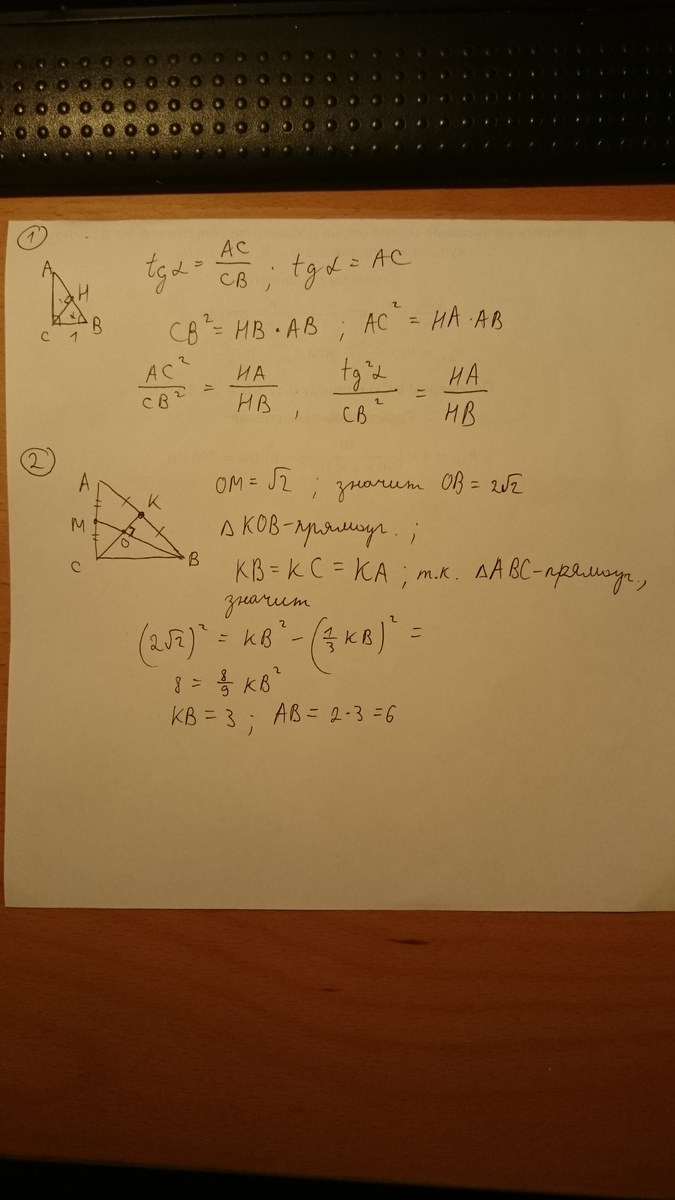 1
A
H
C 1 B
tg α = AC/CB ; tg α = AC
CB² = HB · AB ; AC² = HA · AB
AC²/CB² = HA/HB , tg²α/CB² = HA/HB
2
A
K
M
O
C B
OM = √2 ; значит OB = 2√2
△ KOB - прямоуг. ;
KB = KC = KA ; т.к. △ ABC - прямоуг.,
значит
(2√2)² = KB² - (1/3 KB)² =
8 = 8/9 KB²
KB = 3 ; AB = 2·3 = 6